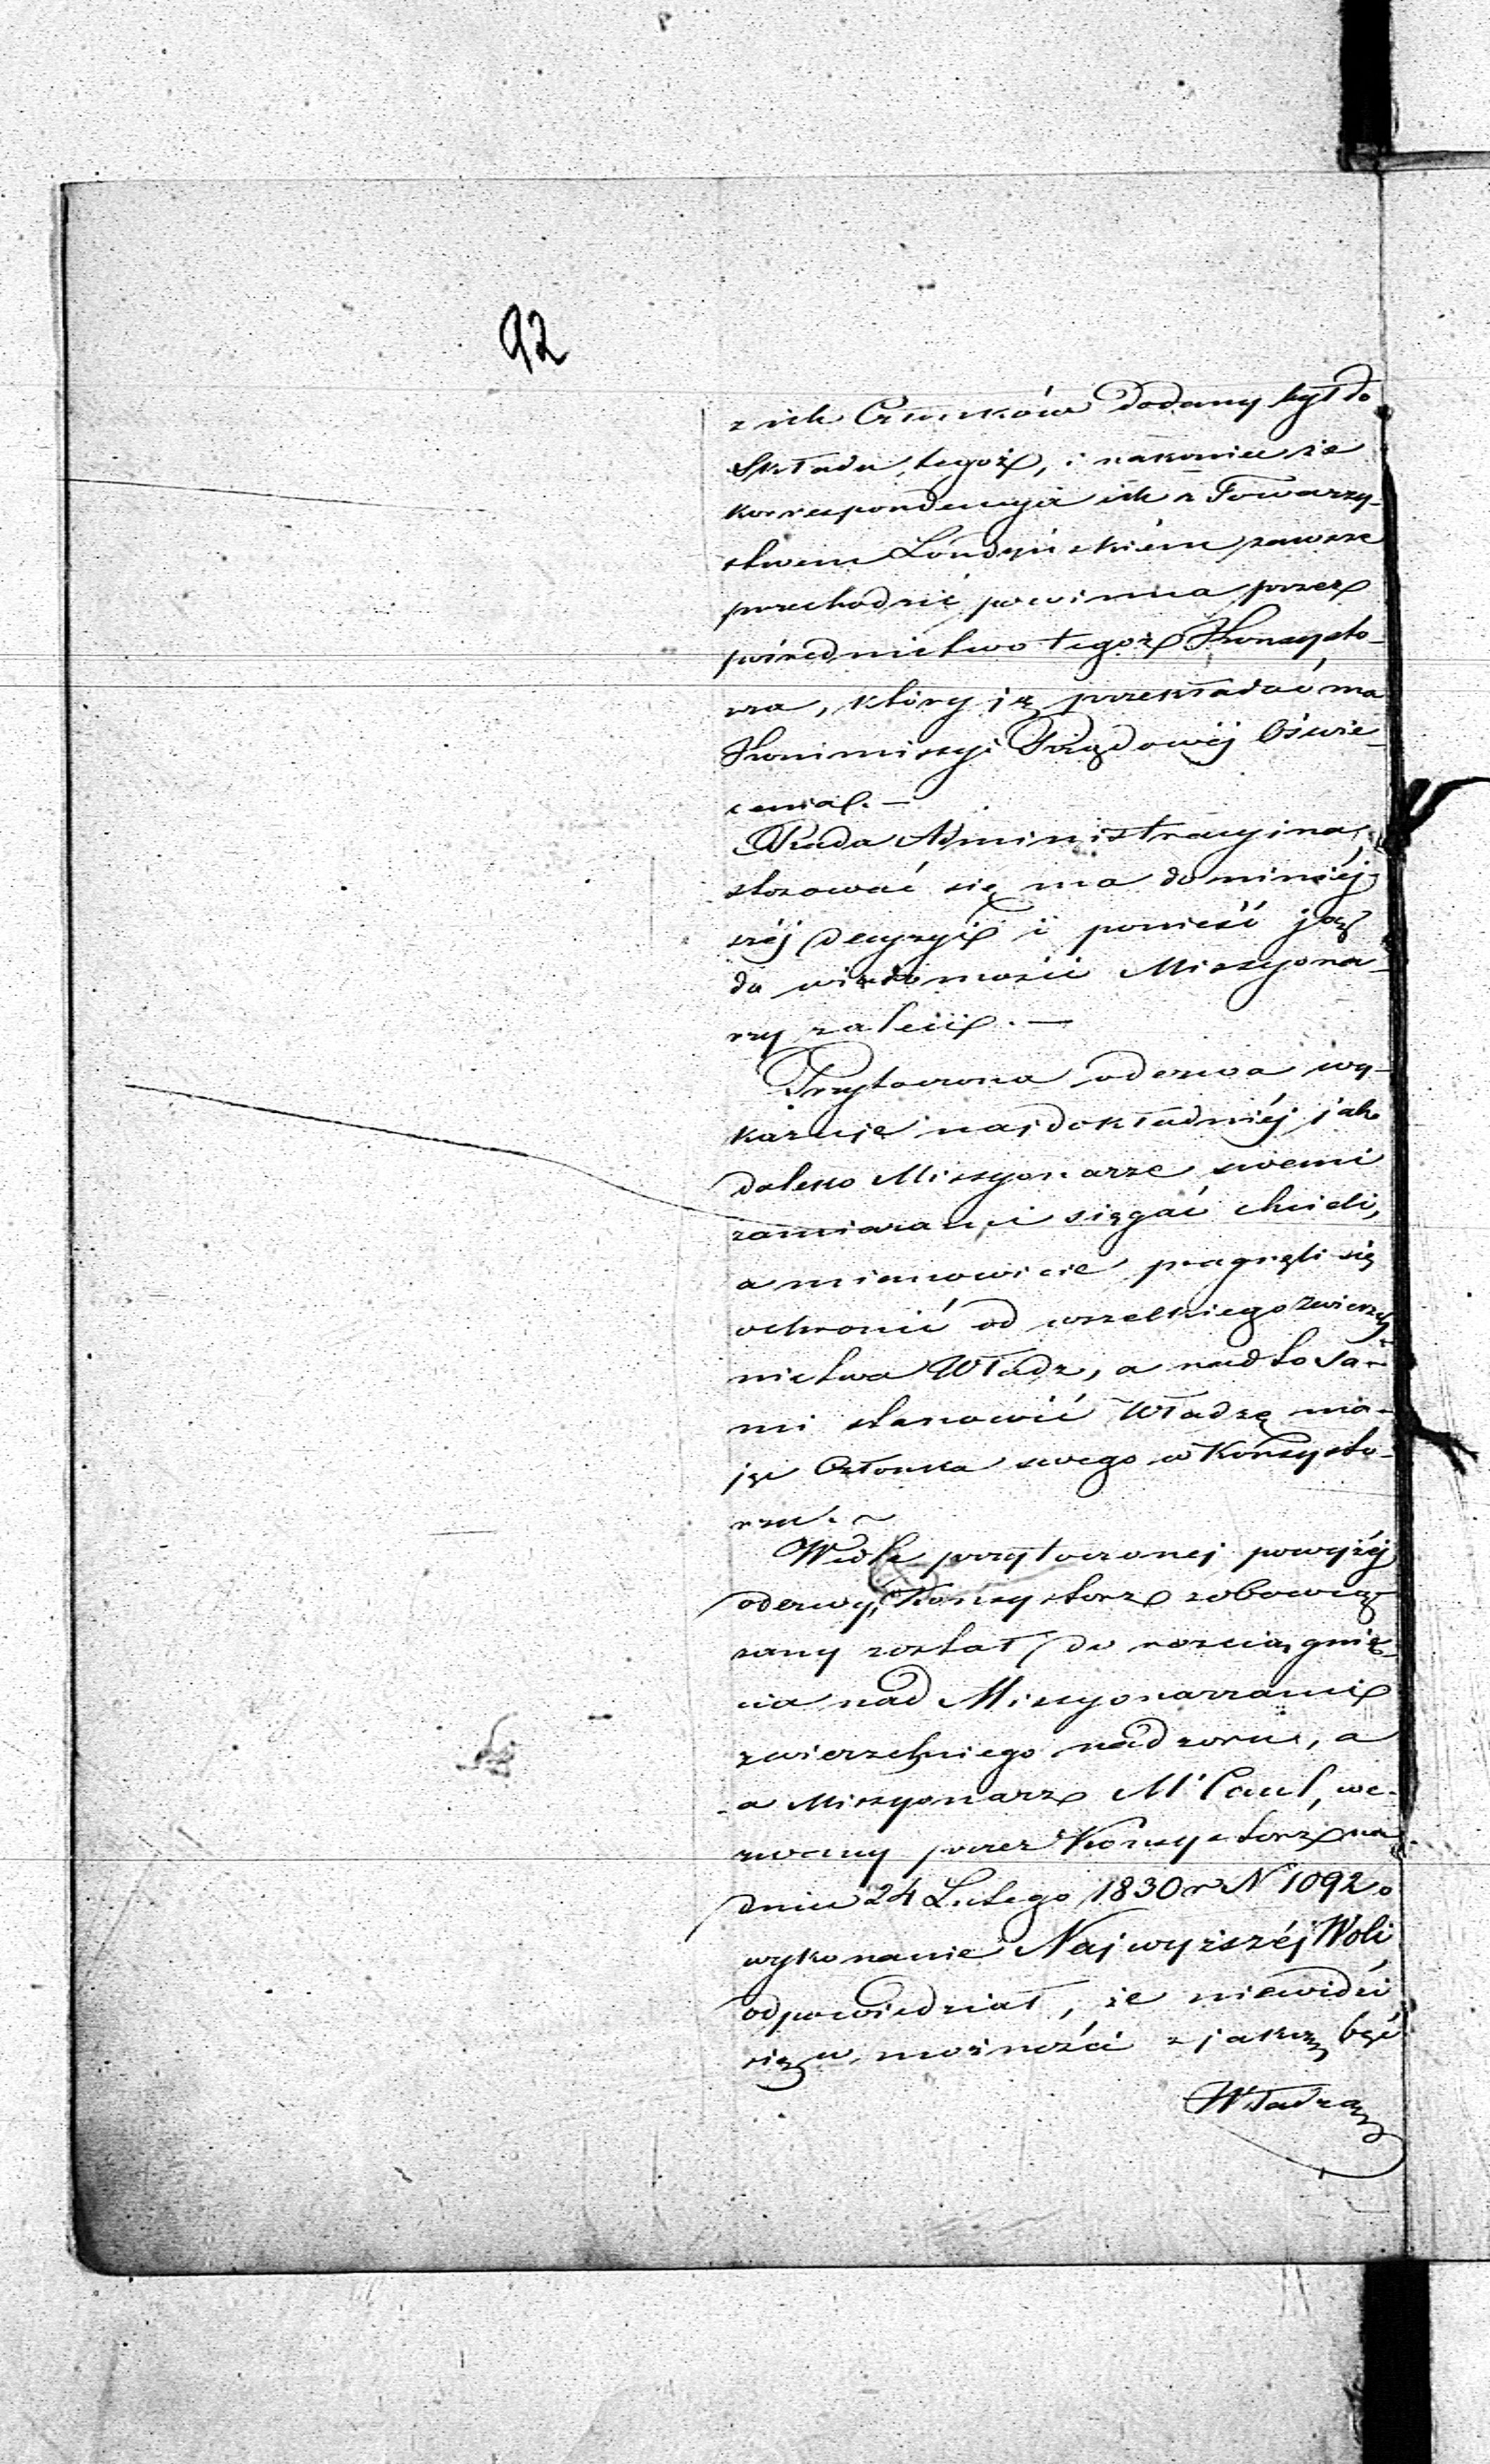 92
z ich Członków dodany był do
składu tegoż, i nakoniec że
korrespondencyja ich z Towarzy-
stwem Londyńskiém zawsze
przechodzić powinna przez
pośrednictwo tegoż Konsysto-
rza, który ją przekładać ma
Kommissyi Rządowéj Oświe-
cenia. —
Rada Administracyina,
stosować się ma do niniéj-
széj decyzyi i ponieść ją
do wiadomości Missyona-
rzy zaleci. —
Przytoczona odezwa wy-
kazuje najdokładniéj jak
daleko Missyonarze swemi
zamiarami sięgać chcieli,
a mianowicie pragnęli się
ochronić od wszelkiego zwierzch-
nictwa Władz, a nadto sa-
mi stanowić Władzę ma-
jąc Członka swego w Konsysto-
rzu. ~
Wedle przytoczonej powyżéj
odezwy, Konsystorz zobowią-
zany został do rozciągnię-
cia nad Missyonarzami
zwierzchniego nadzoru, a
a Missyonarz M'Caul, we-
zwany przez Konsystorz na
dniu 24 Lutego 1830 r N 1092 o
wykonanie Najwyższéj Woli,
odpowiedział, że niewidzi
się w możności z jakąż być
Władzą